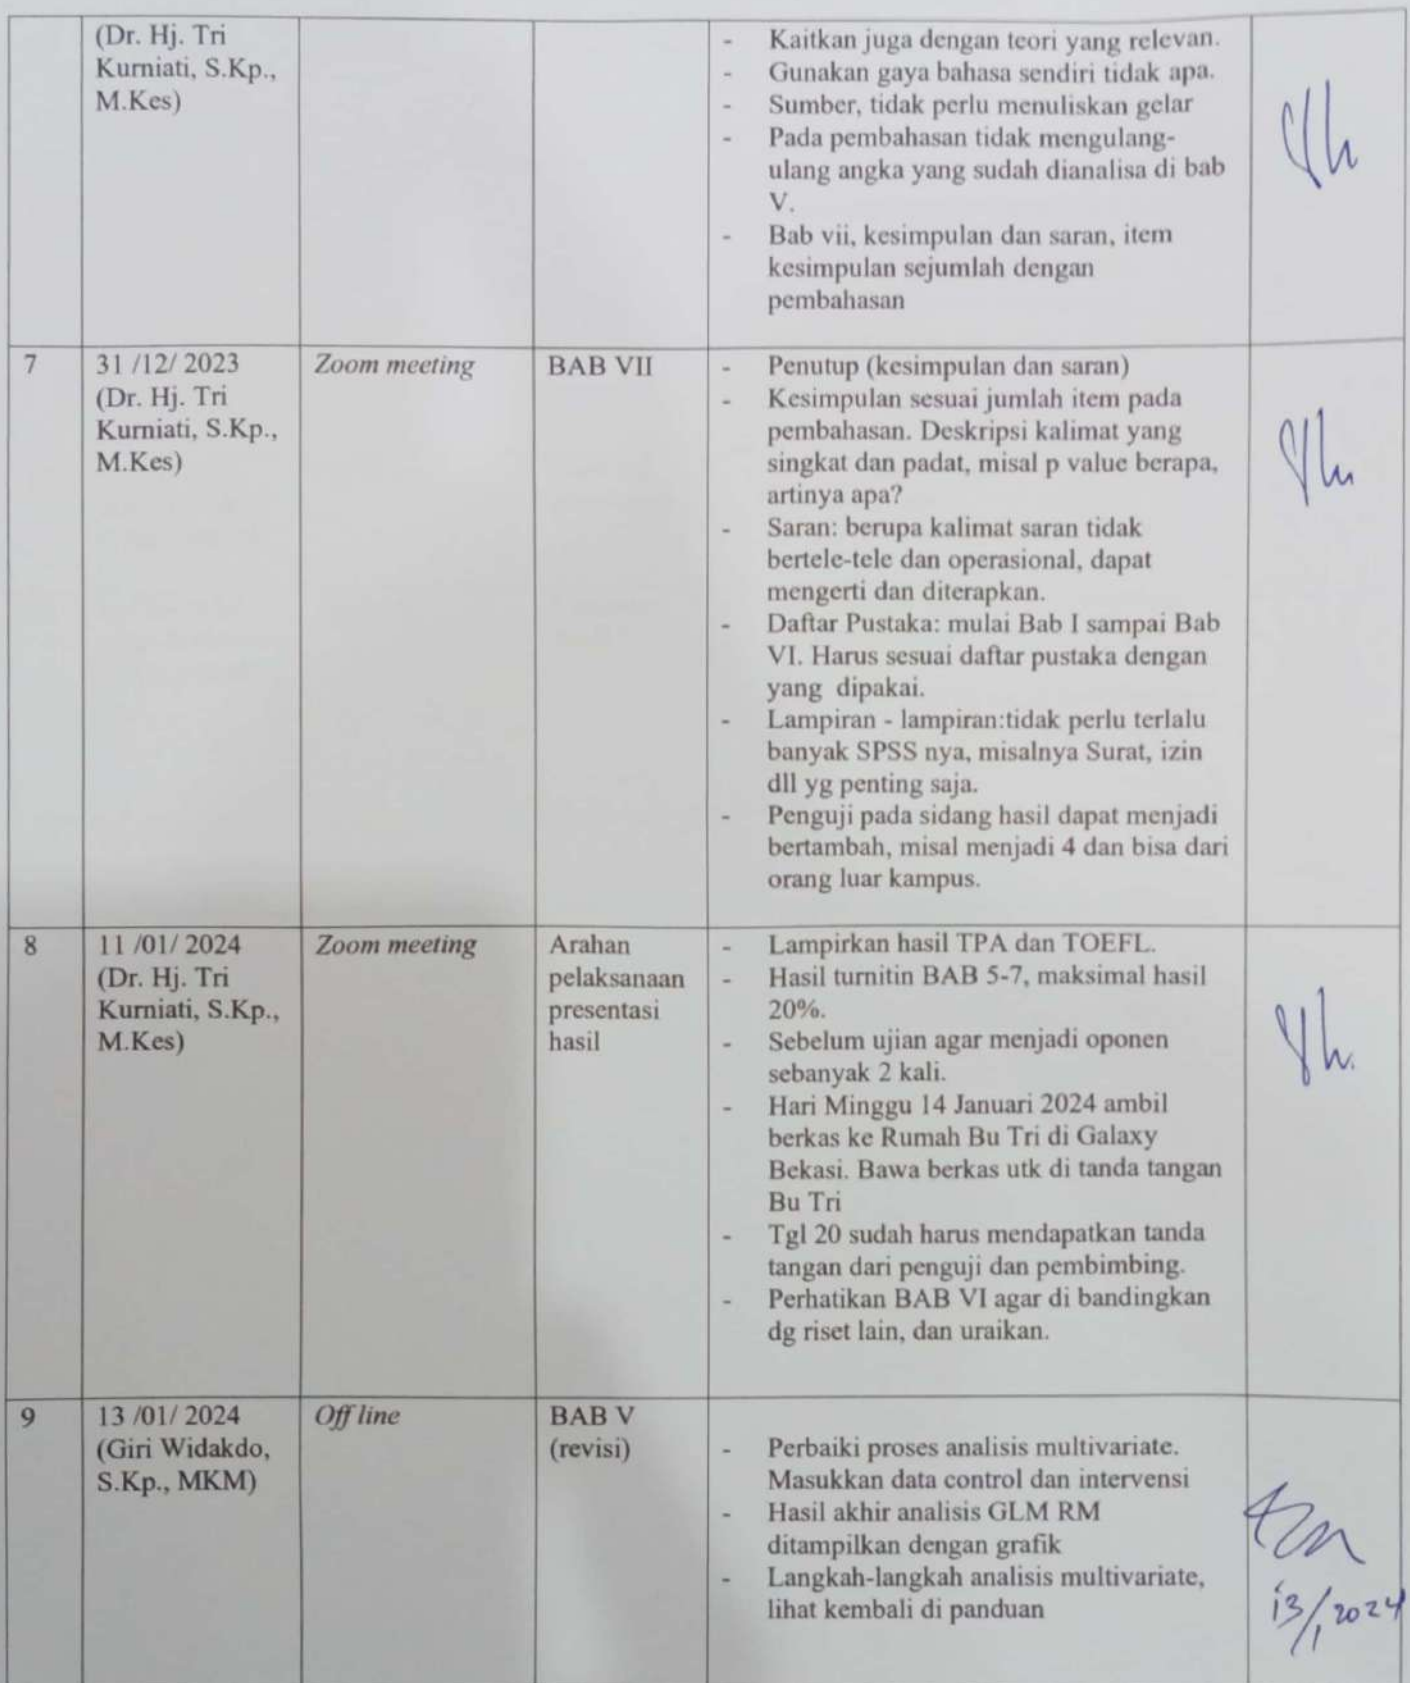 (Dr. Hj. Tri
Kurniati, S.Kp.,
M.Kes)
- Kaitkan juga dengan teori yang relevan.
- Gunakan gaya bahasa sendiri tidak apa.
- Sumber, tidak perlu menuliskan gelar
- Pada pembahasan tidak mengulang-
ulang angka yang sudah dianalisa di bab
V.
- Bab vii, kesimpulan dan saran, item
kesimpulan sejumlah dengan
pembahasan
7
31 /12/ 2023
(Dr. Hj. Tri
Kurniati, S.Kp.,
M.Kes)
Zoom meeting
BAB VII
- Penutup (kesimpulan dan saran)
- Kesimpulan sesuai jumlah item pada
pembahasan. Deskripsi kalimat yang
singkat dan padat, misal p value berapa,
artinya apa?
- Saran: berupa kalimat saran tidak
bertele-tele dan operasional, dapat
mengerti dan diterapkan.
- Daftar Pustaka: mulai Bab I sampai Bab
VI. Harus sesuai daftar pustaka dengan
yang dipakai.
- Lampiran - lampiran:tidak perlu terlalu
banyak SPSS nya, misalnya Surat, izin
dll yg penting saja.
- Penguji pada sidang hasil dapat menjadi
bertambah, misal menjadi 4 dan bisa dari
orang luar kampus.
8
11 /01/ 2024
(Dr. Hj. Tri
Kurniati, S.Kp.,
M.Kes)
Zoom meeting
Arahan
pelaksanaan
presentasi
hasil
- Lampirkan hasil TPA dan TOEFL.
- Hasil turnitin BAB 5-7, maksimal hasil
20%.
- Sebelum ujian agar menjadi oponen
sebanyak 2 kali.
- Hari Minggu 14 Januari 2024 ambil
berkas ke Rumah Bu Tri di Galaxy
Bekasi. Bawa berkas utk di tanda tangan
Bu Tri
- Tgl 20 sudah harus mendapatkan tanda
tangan dari penguji dan pembimbing.
- Perhatikan BAB VI agar di bandingkan
dg riset lain, dan uraikan.
9
13 /01/ 2024
(Giri Widakdo,
S.Kp., MKM)
Off line
BAB V
(revisi)
- Perbaiki proses analisis multivariate.
Masukkan data control dan intervensi
- Hasil akhir analisis GLM RM
ditampilkan dengan grafik
- Langkah-langkah analisis multivariate,
lihat kembali di panduan
13/1 2024